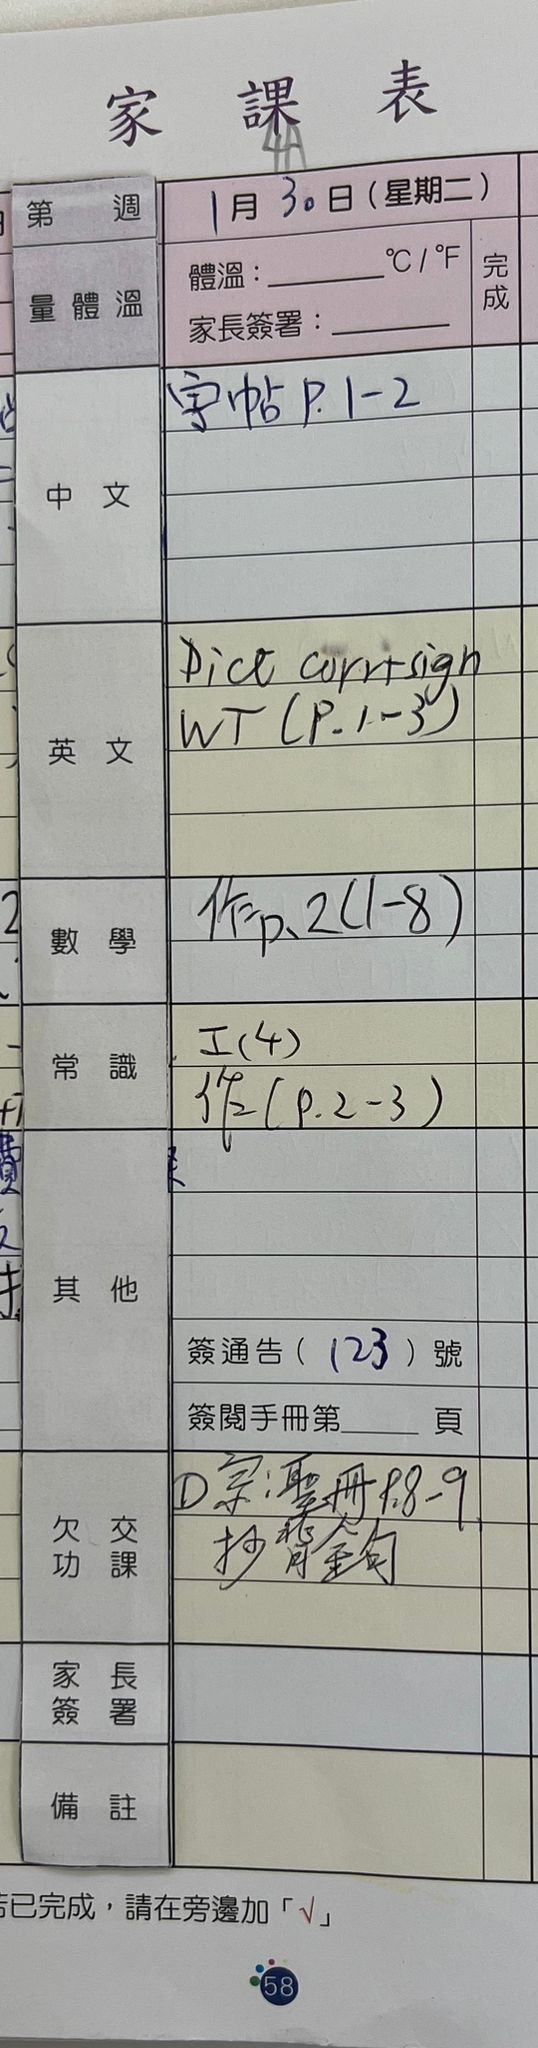 家 課 表
4A
第 週
1月30日(星期二)
量體溫
體溫：________°C/°F
完成
家長簽署：________
中 文
字帖 P. 1-2
英 文
Dict corr+sign
WT (P. 1-3)
數 學
作p. 2(1-8)
常 識
I(4)
作(P. 2-3)
其 他
簽通告( 123 )號
簽閱手冊第____ 頁
欠 交
功 課
宗:聖冊P.8-9
抄背金句
家 長
簽 署
備 註
已完成，請在旁邊加「√」
58